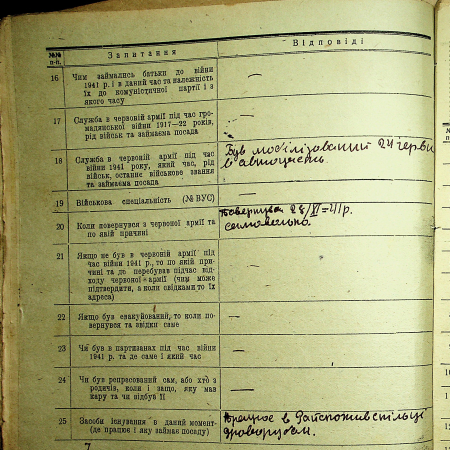 №№ п-п.
Запитання
Відповіді
16 Чим займались батьки до війни
1941 р. і в даний час та належність
їх до комуністичної партії і з
якого часу
—
17 Служба в червоній армії під час гро-
мадянської війни 1917—22 років,
рід військ та займаєма посада
—
18 Служба в червоній армії під час
війни 1941 року, який час, рід
військ, останнє військове знання
та займаєма посада
Був мобілізований 24 черв
в авточасть
19 Військова спеціальність (№ ВУС)
—
20 Коли повернувся з червоної армії та
по якій причині
Повернувся 28/VI-41 р.
самовольно.
21 Якщо не був в червоній армії під
час війни 1941 р., то по якій при-
чині та де перебував підчас від-
ходу червоної армії (чим може
підтвердити, а коли свідками то їх
адреса)
—
22 Якщо був евакуйований, то коли по-
вернувся та звідки саме
—
23 Чи був в партизанах під час війни
1941 р. та де саме і який час
—
24 Чи був репресований сам, або хто з
родичів, коли і защо, яку мав
кару та чи відбув її
—
25 Засоби існування в даний момент-
(де працює і яку займає посаду)
Працює в Райспоживспільці
7